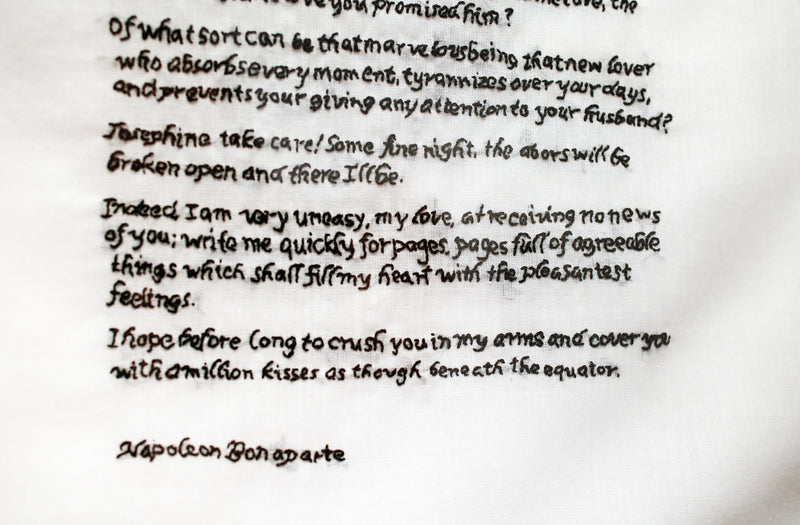 love you promised him? the
Of what sort can be that marvelous being that new lover
who absorbs every moment, tyrannizes over your days,
and prevents your giving any attention to your husband?
Josephine take care! Some fine night, the doors will be
broken open and there I'll be.
Indeed I am very uneasy, my love, at receiving no news
of you; write me quickly for pages, pages full of agreeable
things which shall fill my heart with the pleasantest
feelings.
I hope before long to crush you in my arms and cover you
with a million kisses as though beneath the equator.
Napoleon Bonaparte